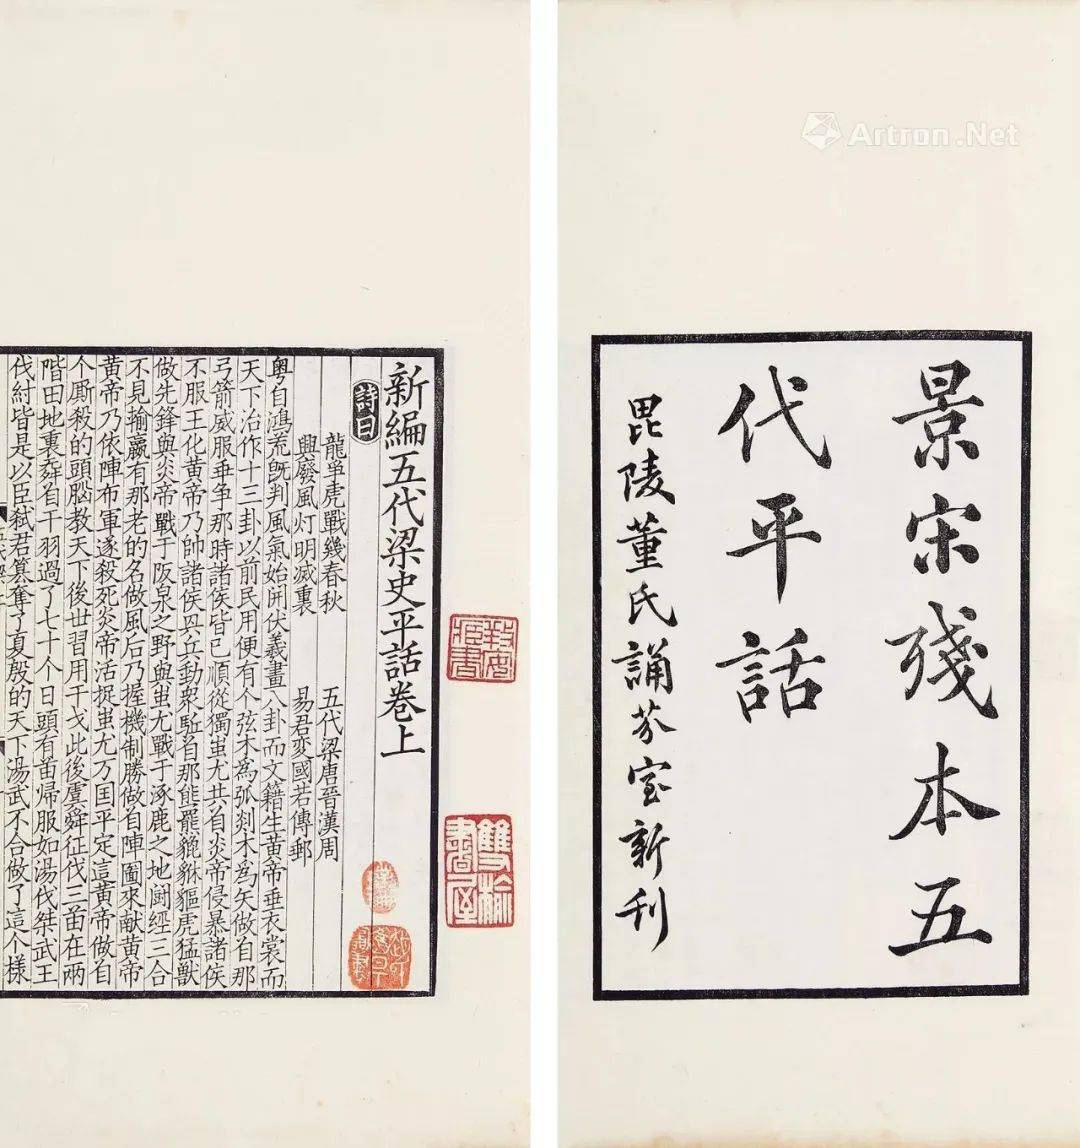 Artron.Net
景宋殘本五
代平話
毘陵董氏誦芬室新刊
新編五代梁史平話卷上
詩曰
龍争虎戰幾春秋 五代梁唐晉漢周
興廢風灯明滅裏 易君変國若傳郵
粤自鴻荒既判風氣始開伏羲畫八卦而文籍生黄帝垂衣裳而
天下治作十三卦以前民用便有个弦木爲弧剡木爲矢做自那
弓箭威服乖争那時諸侯皆已順從獨蚩尤共自炎帝侵暴諸侯
不服王化黄帝乃帥諸侯興兵動衆驅自那熊羆貔貅貙虎猛獸
做先鋒與炎帝戰于阪泉之野與蚩尤戰于涿鹿之地閗經三合
不見輸贏有那老的名做風后乃握機制勝做自陣圖來献黄帝
黄帝乃依陣布軍遂殺死炎帝活捉蚩尤万囯平定這黄帝做自
个廝殺的頭腦教天下後世習用干戈此後虞舜征伐三苗在兩
階田地裏舞自干羽過了七十个日頭有苗歸服如湯伐桀武王
伐紂皆是以臣弑君篡奪了夏殷的天下湯武不合做了這个樣
雙榆書屋